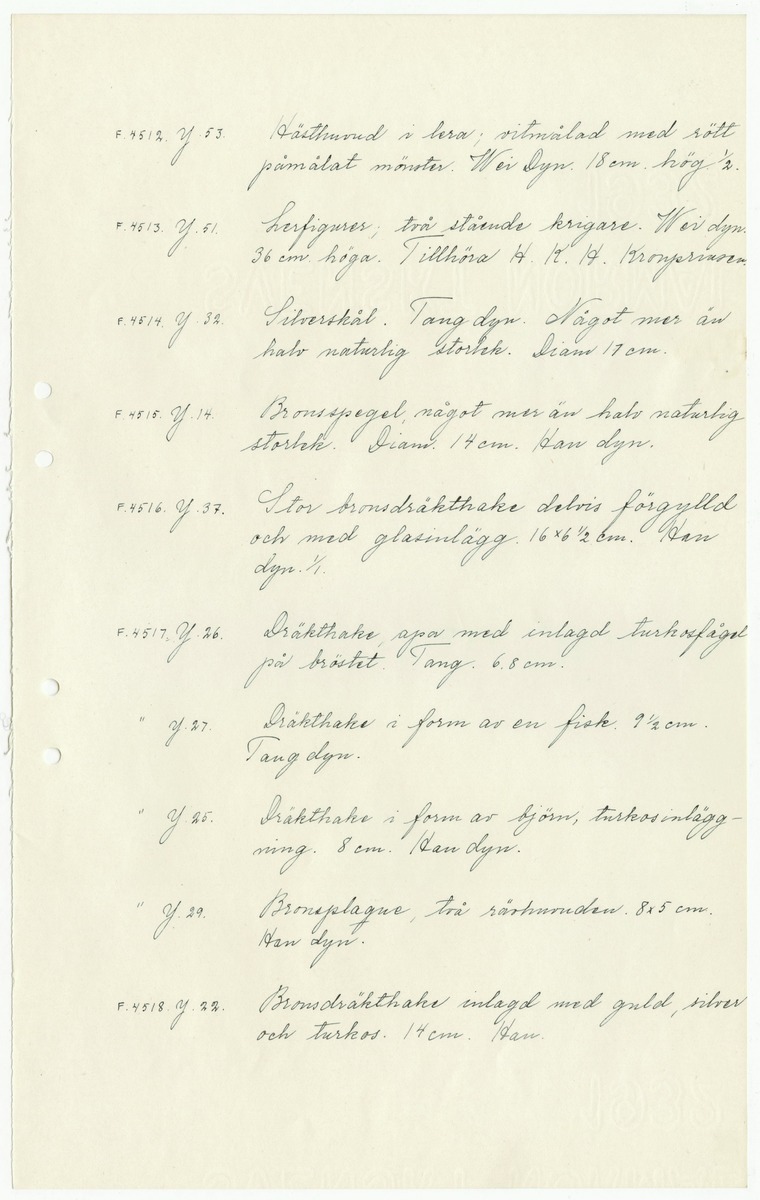 F.4512. Y.53. Hästhuvud i lera; vitmålad med rött
påmålat mönster. Wei Dyn. 18 cm. hög. 1/2.
F.4513. Y.51. Lerfigurer; två stående krigare. Wei dyn.
36 cm. höga. Tillhöra H. K. H. Kronprinsen.
F.4514. Y.32. Silverskål. Tang dyn. Något mer än
halv naturlig storlek. Diam 17 cm.
F.4515. Y.14. Bronsspegel, något mer än halv naturlig
storlek. Diam. 14 cm. Han dyn.
F.4516. Y.37. Stor bronsdräkthake delvis förgylld
och med glasinlägg. 16×6 1/2 cm. Han
dyn. 1/1.
F.4517. Y.26. Dräkthake, apa med inlagd turkosfågel
på bröstet. Tang. 6.8 cm.
" Y.27. Dräkthake i form av en fisk. 9 1/2 cm.
Tang dyn.
" Y.25. Dräkthake i form av björn, turkosinlägg-
ning. 8 cm. Han dyn.
" Y.29. Bronsplaque, två rävhuvuden. 8×5 cm.
Han dyn.
F.4518. Y.22. Bronsdräkthake inlagd med guld, silver
och turkos. 14 cm. Han.